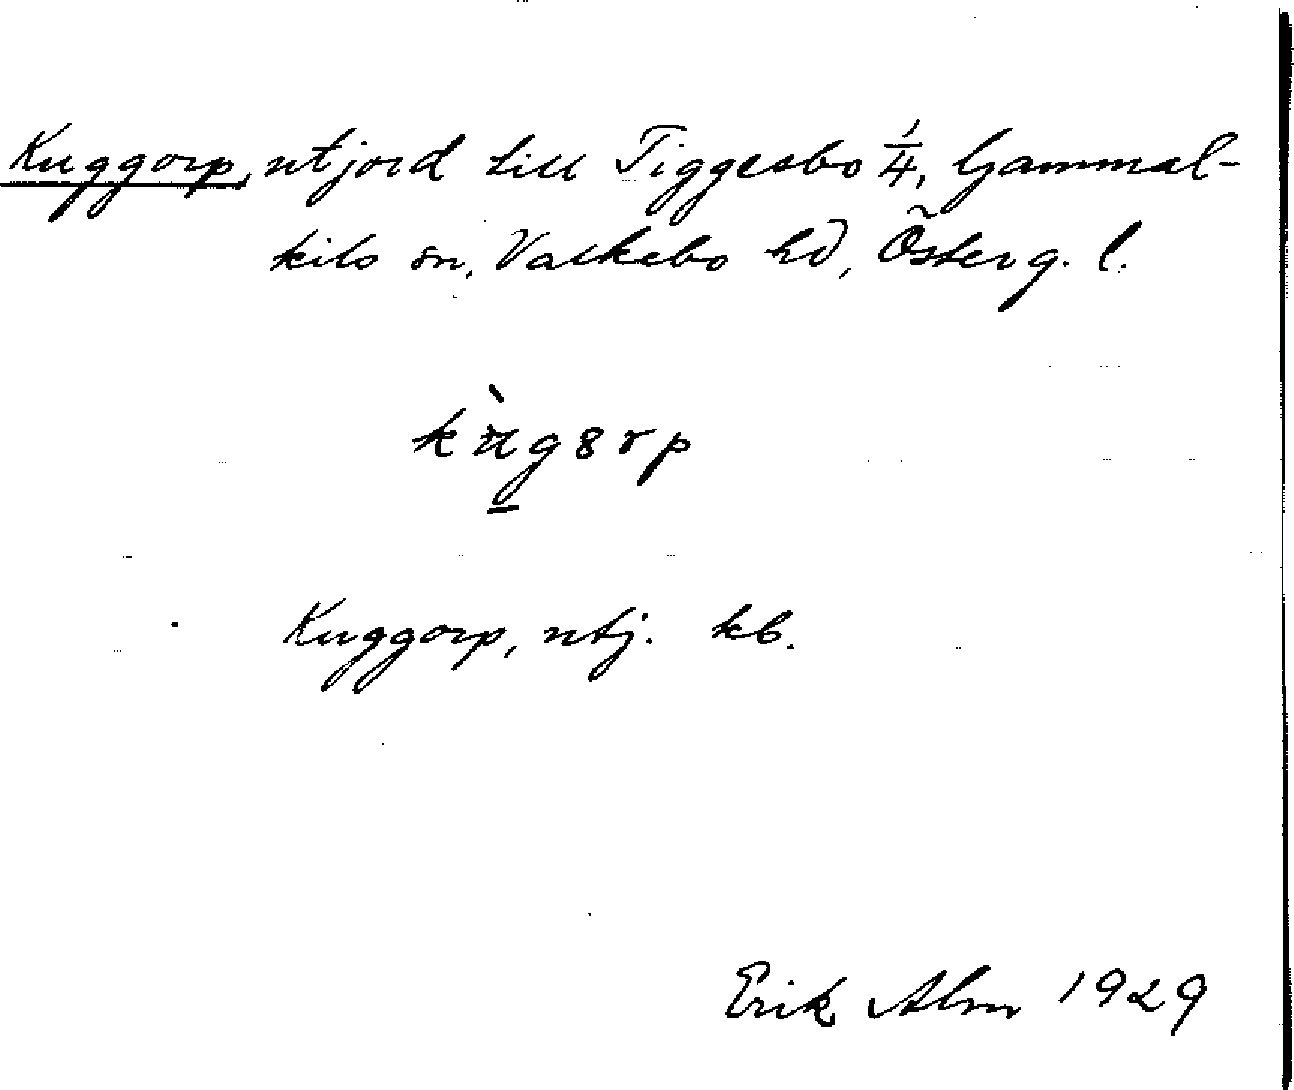 Kuggorp, utjord till Tiggesbo 1/4, Gammal-
kils sn, Valkebo hd, Österg. l.
kùg8rp
Kuggorp, utj. kb.
Erik Alm 1929